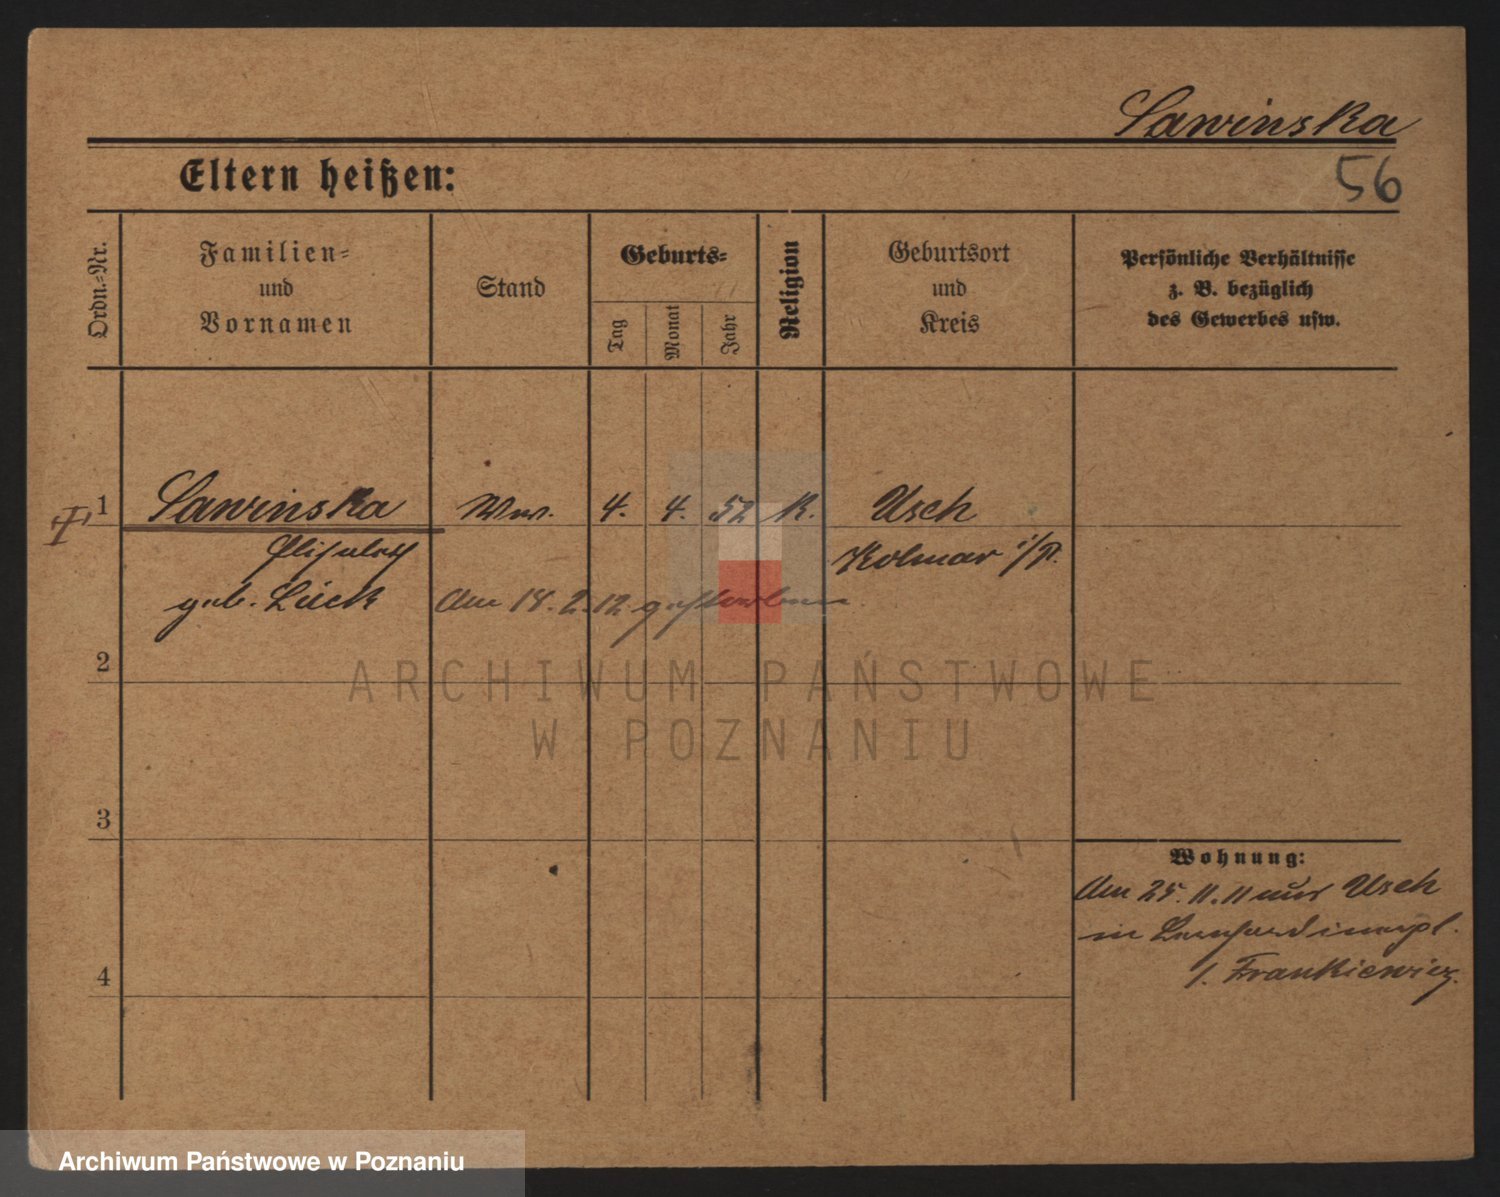 Sawinska
Eltern heißen:
56
Ordn.-Nr.
Familien-
und
Vornamen
Stand
Geburts-
Tag
Monat
Jahr
Religion
Geburtsort
und
Kreis
Persönliche Verhältnisse
z. B. bezüglich
des Gewerbes usw.
1
Sawinska
Ww.
4.
4.
52
K.
Usch
Elisabeth
Kolmar i/P.
geb. Lück
Am 18.2.12 gestorben.
2
ARCHIWUM PAŃSTWOWE
W POZNANIU
3
Wohnung:
Am 25.11.11 aus Usch
in Bernhardinerpl.
1. Frankiewicz.
4
Archiwum Państwowe w Poznaniu